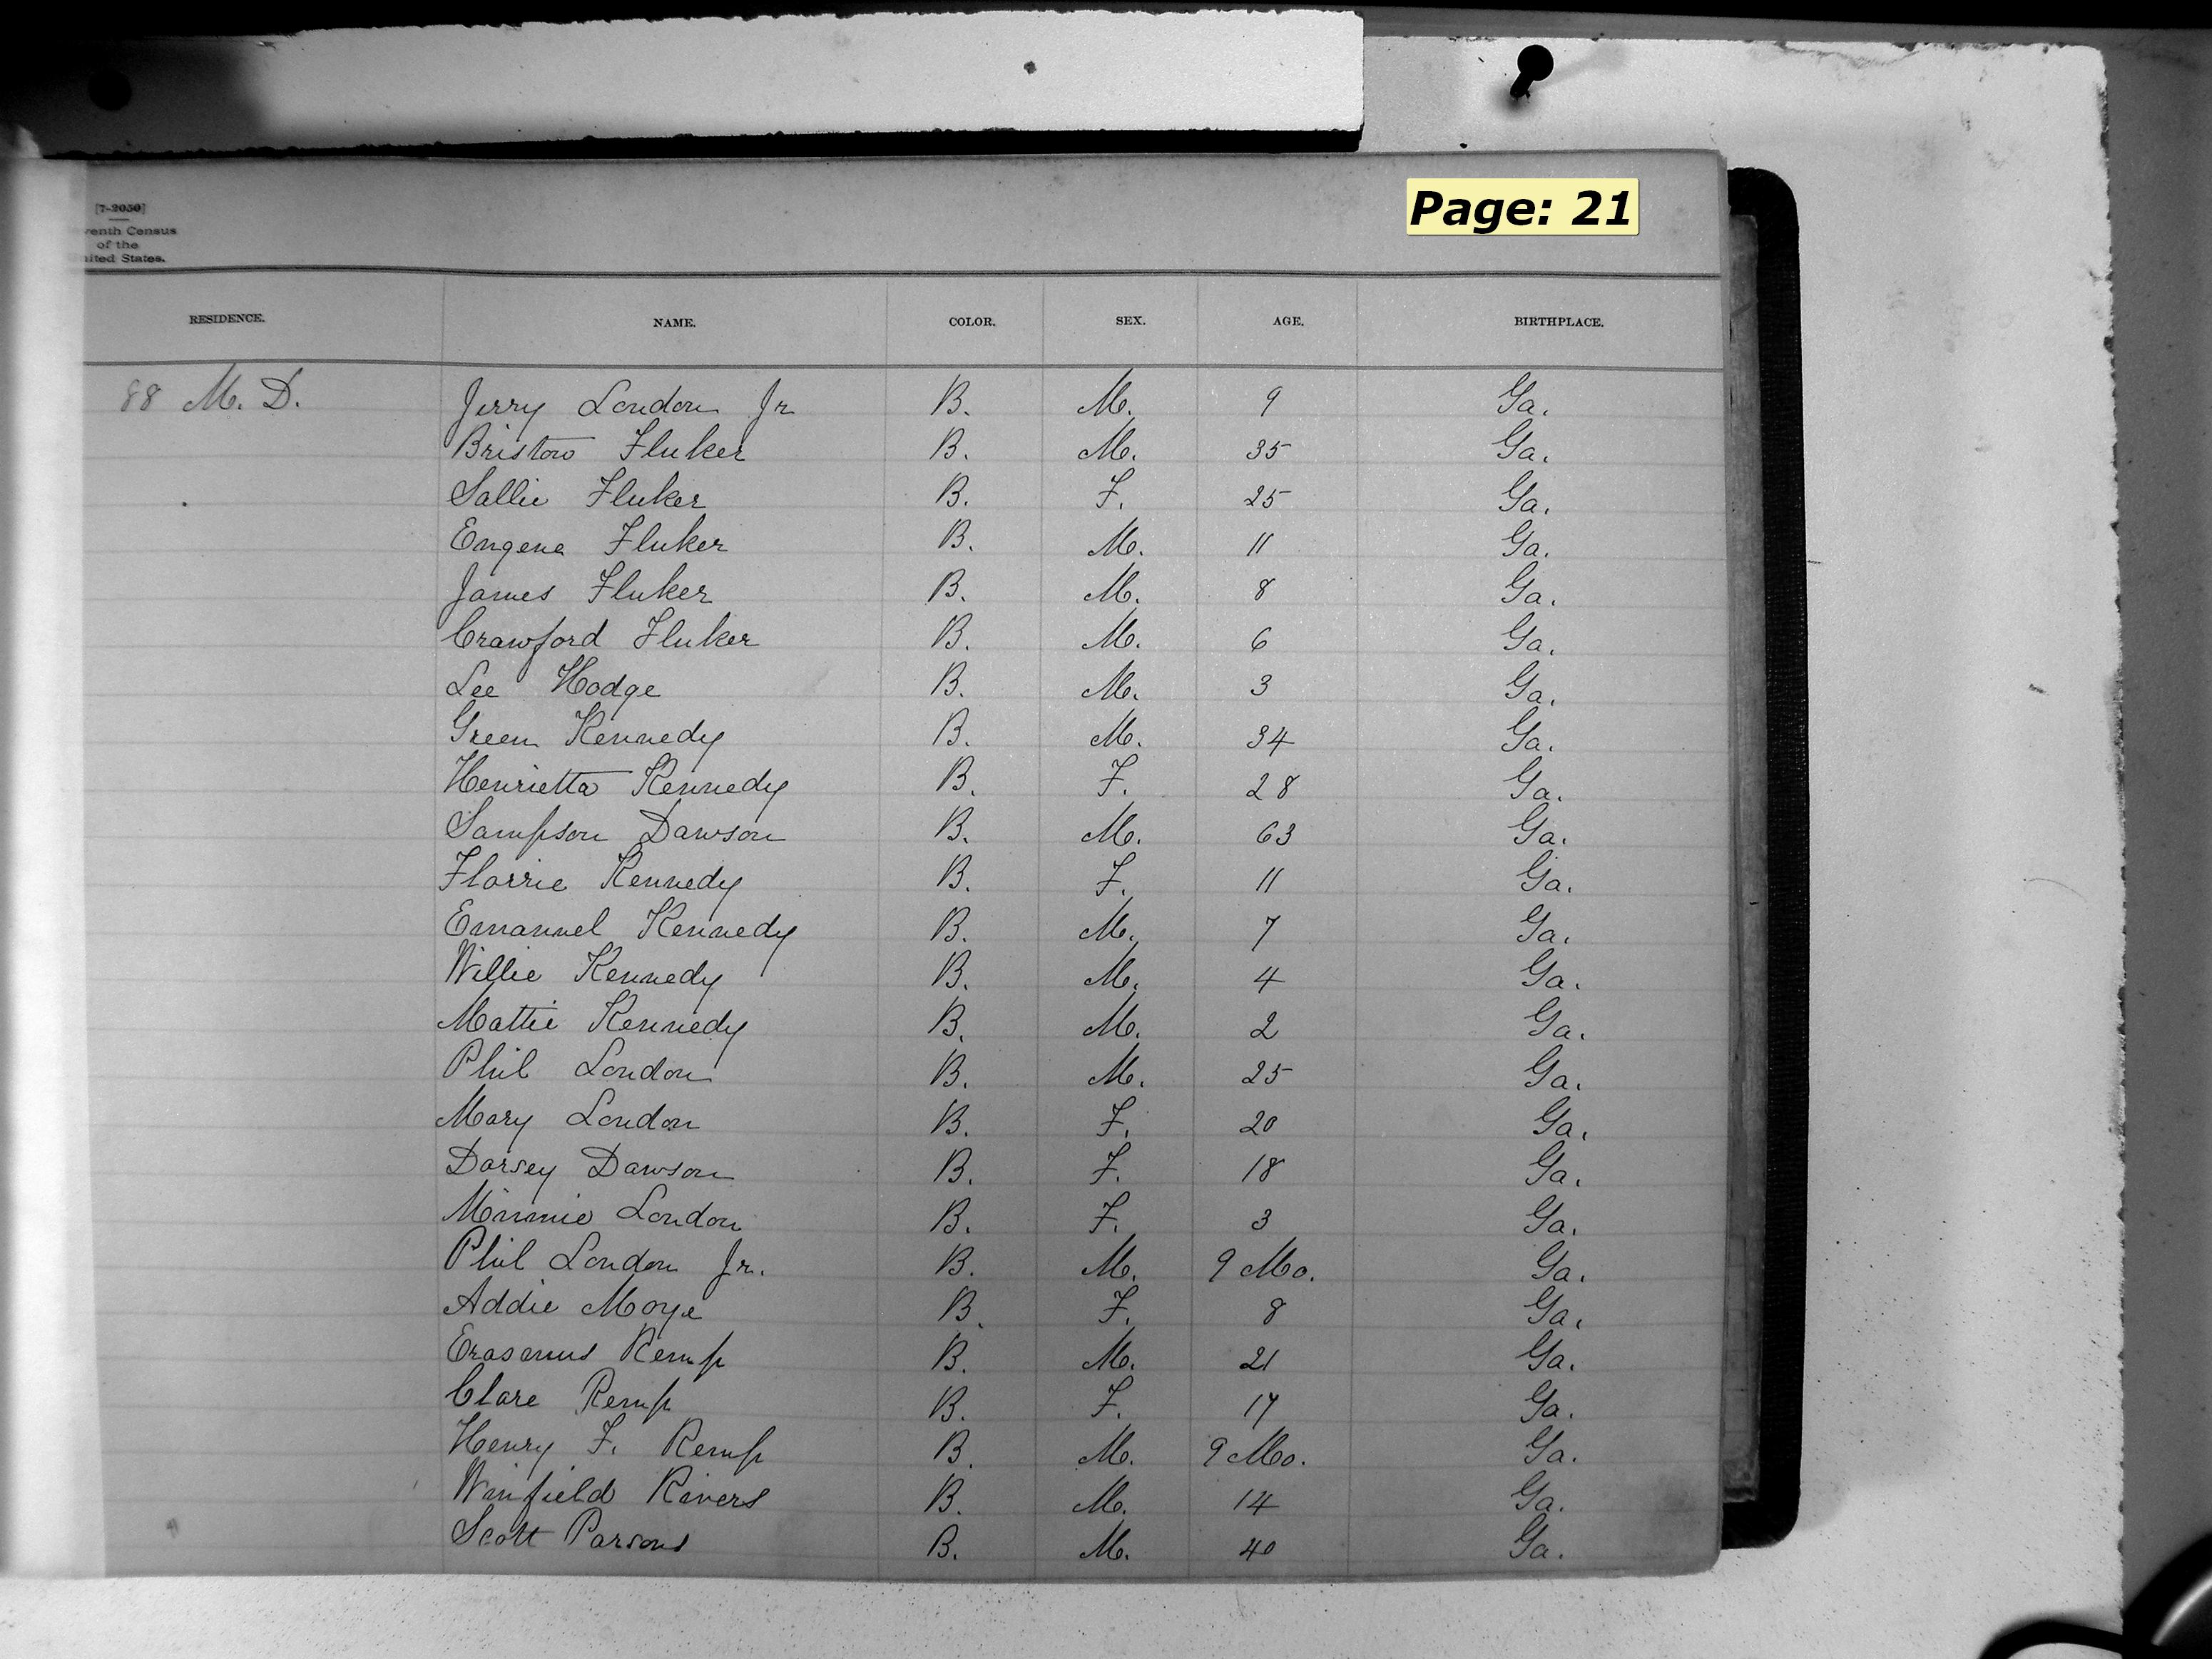 Page: 21
[7-2050]
venth Census
of the
nited States.
RESIDENCE. NAME. COLOR. SEX. AGE. BIRTHPLACE.
88 M. D. Jerry London Jr B. M. 9 Ga.
Bristow Fluker B. M. 35 Ga.
Sallie Fluker B. F. 25 Ga.
Eugene Fluker B. M. 11 Ga.
James Fluker B. M. 8 Ga.
Crawford Fluker B. M. 6 Ga.
Lee Hodge B. M. 3 Ga.
Green Kennedy B. M. 34 Ga.
Henrietta Kennedy B. F. 28 Ga.
Sampson Dawson B. M. 63 Ga.
Florrie Kennedy B. F. 11 Ga.
Emanuel Kennedy B. M. 7 Ga.
Willie Kennedy B. M. 4 Ga.
Mattie Kennedy B. M. 2 Ga.
Phil London B. M. 25 Ga.
Mary London B. F. 20 Ga.
Dorsey Dawson B. F. 18 Ga.
Minnie London B. F. 3 Ga.
Phil London Jr. B. M. 9 Mo. Ga.
Addie Moye B. F. 8 Ga.
Erasmus Kemp B. M. 21 Ga.
Clare Kemp B. F. 17 Ga.
Henry F. Kemp B. M. 9 Mo. Ga.
Winfield Rivers B. M. 14 Ga.
Scott Parsons B. M. 40 Ga.